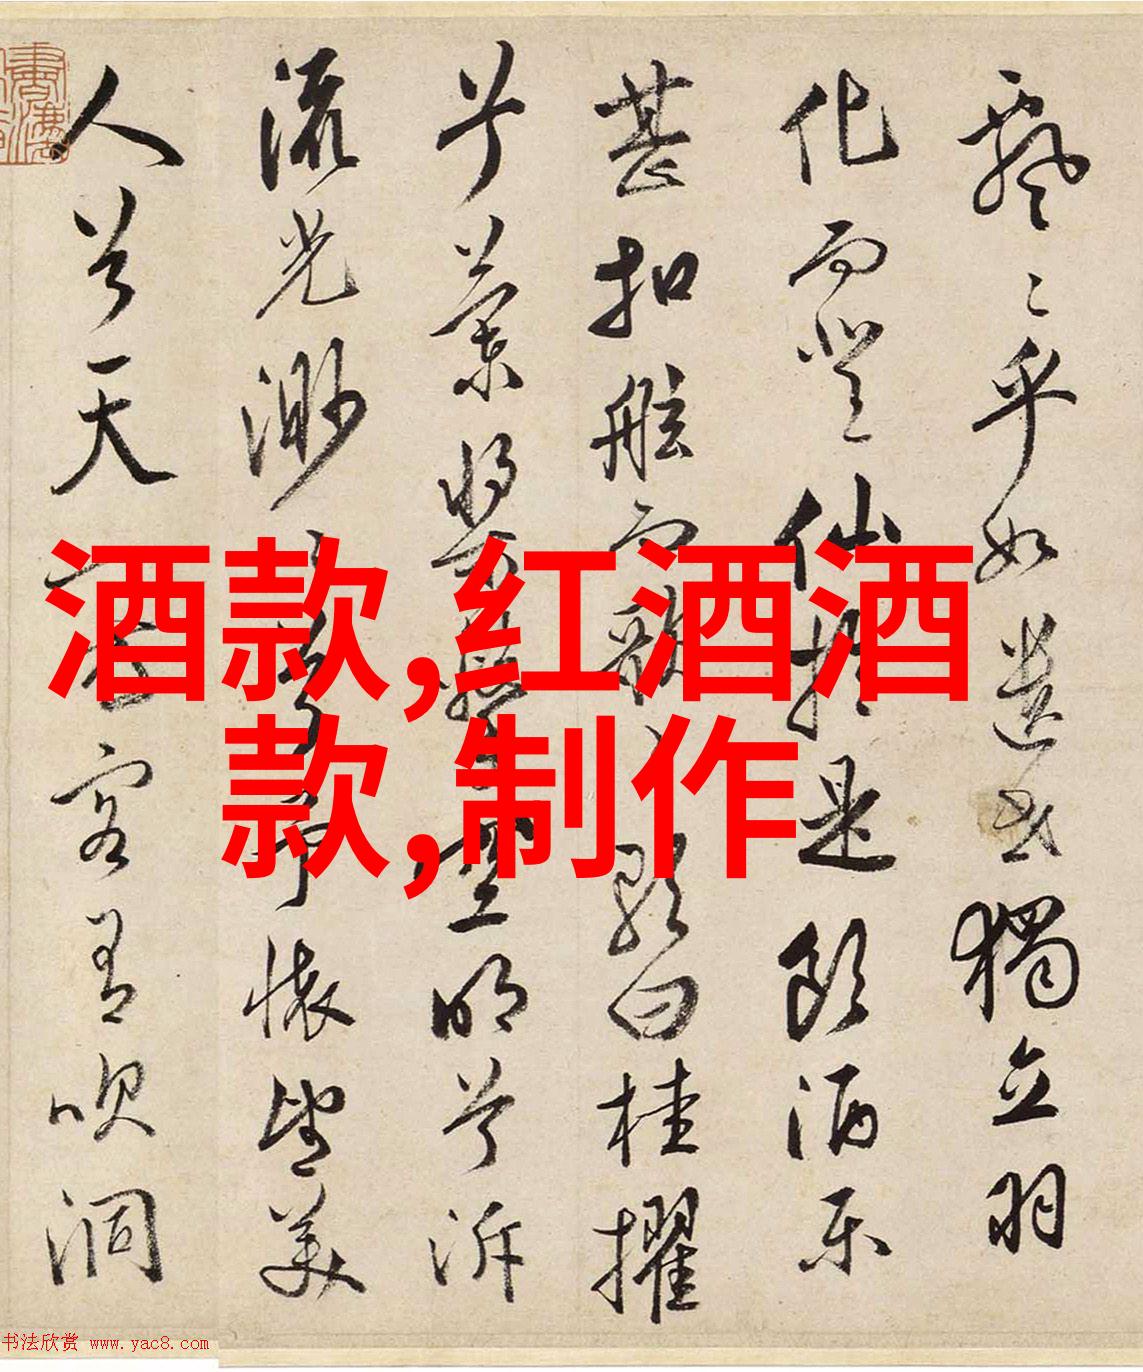 飄〻乎如遺世獨立羽
化而登仙於是飲酒樂
甚扣舷而歌之歌曰桂擢
兮蘭槳擊空明兮泝
流光渺〻兮予懷望美
人兮天一方客有吹洞
酒款,红酒酒
款,制作
书法欣赏 www.yac8.com